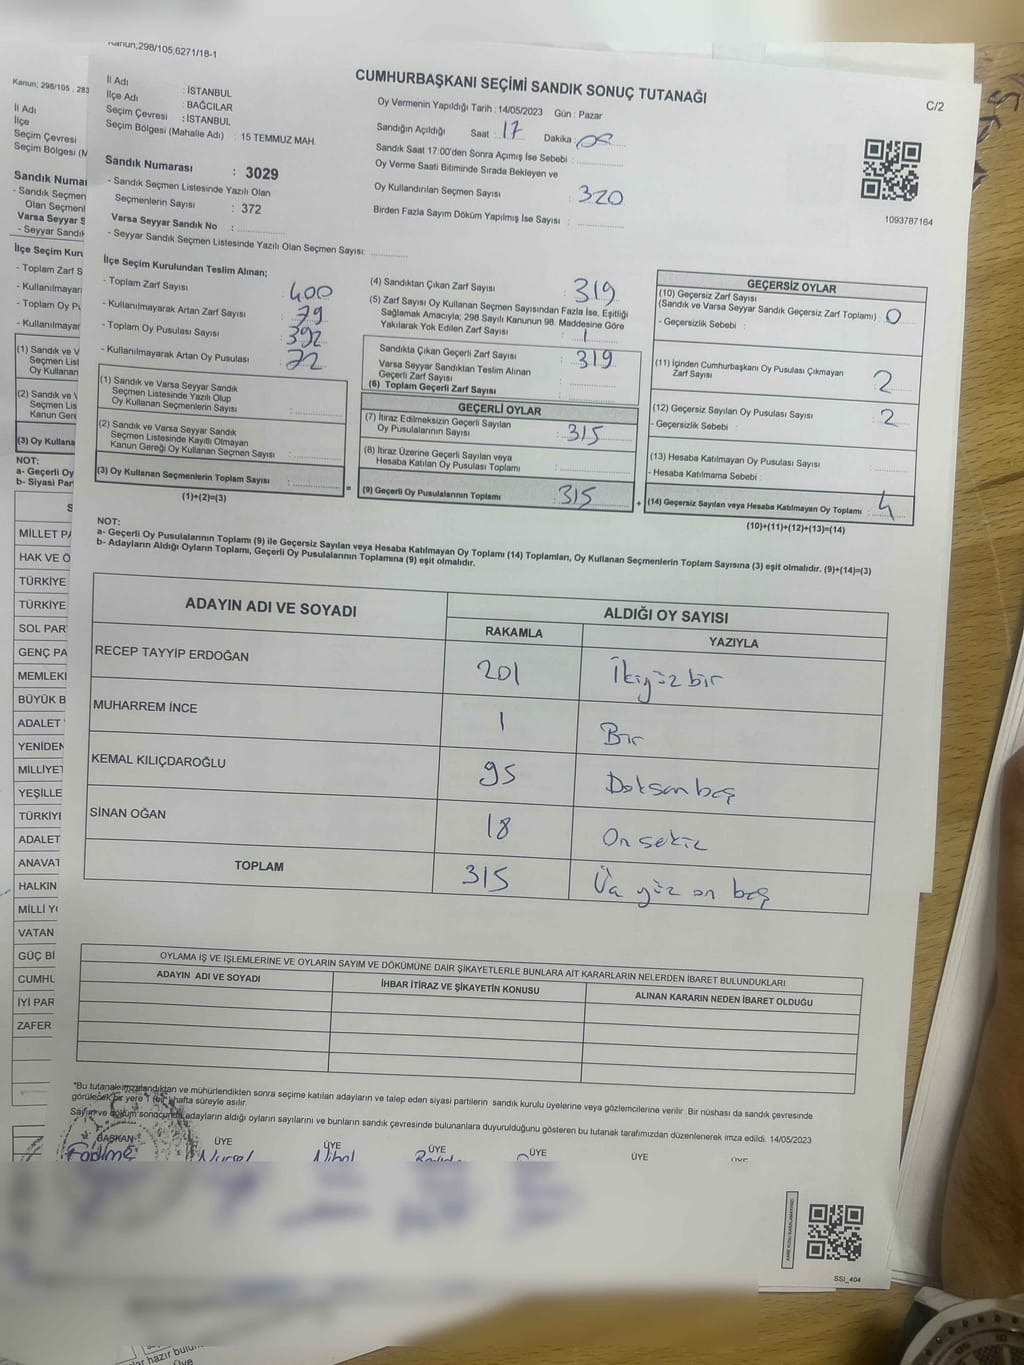 Kanun;298/105,6271/18-1
CUMHURBAŞKANI SEÇİMİ SANDIK SONUÇ TUTANAĞI
C/2
İl Adı : İSTANBUL
İlçe Adı : BAĞCILAR
Seçim Çevresi : İSTANBUL
Seçim Bölgesi (Mahalle Adı) : 15 TEMMUZ MAH.
Sandık Numarası : 3029
- Sandık Seçmen Listesinde Yazılı Olan
Seçmenlerin Sayısı : 372
Varsa Seyyar Sandık No :
- Seyyar Sandık Seçmen Listesinde Yazılı Olan Seçmen Sayısı:
Oy Vermenin Yapıldığı Tarih : 14/05/2023 Gün : Pazar
Sandığın Açıldığı Saat : 17 Dakika
Sandık Saat 17:00'den Sonra Açımış İse Sebebi :
Oy Verme Saati Bitiminde Sırada Bekleyen ve
Oy Kullandırılan Seçmen Sayısı : 320
Birden Fazla Sayım Döküm Yapılmış İse Sayısı :
1093787164
İlçe Seçim Kurulundan Teslim Alınan;
- Toplam Zarf Sayısı : 400
- Kullanılmayarak Artan Zarf Sayısı : 79
- Toplam Oy Pusulası Sayısı : 392
- Kullanılmayarak Artan Oy Pusulası : 72
(1) Sandık ve Varsa Seyyar Sandık
Seçmen Listesinde Yazılı Olup
Oy Kullanan Seçmenlerin Sayısı :
(2) Sandık ve Varsa Seyyar Sandık
Seçmen Listesinde Kayıtlı Olmayan
Kanun Gereği Oy Kullanan Seçmen Sayısı :
(3) Oy Kullanan Seçmenlerin Toplam Sayısı :
(1)+(2)=(3)
(4) Sandıktan Çıkan Zarf Sayısı : 319
(5) Zarf Sayısı Oy Kullanan Seçmen Sayısından Fazla İse, Eşitliği
Sağlamak Amacıyla; 298 Sayılı Kanunun 98. Maddesine Göre
Yakılarak Yok Edilen Zarf Sayısı : 1
Sandıkta Çıkan Geçerli Zarf Sayısı : 319
Varsa Seyyar Sandıktan Teslim Alınan
Geçerli Zarf Sayısı :
(6) Toplam Geçerli Zarf Sayısı :
GEÇERLİ OYLAR
(7) İtiraz Edilmeksizin Geçerli Sayılan
Oy Pusulalarının Sayısı : 315
(8) İtiraz Üzerine Geçerli Sayılan veya
Hesaba Katılan Oy Pusulası Toplamı :
= (9) Geçerli Oy Pusulalarının Toplamı : 315 +
GEÇERSİZ OYLAR
(10) Geçersiz Zarf Sayısı
(Sandık ve Varsa Seyyar Sandık Geçersiz Zarf Toplamı) : 0
- Geçersizlik Sebebi :
(11) İçinden Cumhurbaşkanı Oy Pusulası Çıkmayan
Zarf Sayısı : 2
(12) Geçersiz Sayılan Oy Pusulası Sayısı : 2
- Geçersizlik Sebebi :
(13) Hesaba Katılmayan Oy Pusulası Sayısı :
- Hesaba Katılmama Sebebi :
(14) Geçersiz Sayılan veya Hesaba Katılmayan Oy Toplamı : 4
(10)+(11)+(12)+(13)=(14)
NOT:
a- Geçerli Oy Pusulalarının Toplamı (9) ile Geçersiz Sayılan veya Hesaba Katılmayan Oy Toplamı (14) Toplamları, Oy Kullanan Seçmenlerin Toplam Sayısına (3) eşit olmalıdır. (9)+(14)=(3)
b- Adayların Aldığı Oyların Toplamı, Geçerli Oy Pusulalarının Toplamına (9) eşit olmalıdır.
ADAYIN ADI VE SOYADI
ALDIĞI OY SAYISI
RAKAMLA YAZIYLA
RECEP TAYYİP ERDOĞAN 201 İkiyüz bir
MUHARREM İNCE 1 Bir
KEMAL KILIÇDAROĞLU 95 Doksan beş
SİNAN OĞAN 18 On sekiz
TOPLAM 315 Üç yüz on beş
OYLAMA İŞ VE İŞLEMLERİNE VE OYLARIN SAYIM VE DÖKÜMÜNE DAİR ŞİKAYETLERLE BUNLARA AİT KARARLARIN NELERDEN İBARET BULUNDUKLARI
ADAYIN ADI VE SOYADI İHBAR İTİRAZ VE ŞİKAYETİN KONUSU ALINAN KARARIN NEDEN İBARET OLDUĞU
*Bu tutanak imzalandıktan ve mühürlendikten sonra seçime katılan adayların ve talep eden siyasi partilerin sandık kurulu üyelerine veya gözlemcilerine verilir. Bir nüshası da sandık çevresinde
görülecek bir yere 1 (bir) hafta süreyle asılır.
Sayım ve döküm sonucunda adayların aldığı oyların sayılarını ve bunların sandık çevresinde bulunanlara duyurulduğunu gösteren bu tutanak tarafımızdan düzenlenerek imza edildi. 14/05/2023
BAŞKAN ÜYE ÜYE ÜYE ÜYE ÜYE ÜYE
Fadime Nursel Nihal
SSİ_404
Kanun; 298/105 , 283
İl Adı
İlçe
Seçim Çevresi
Seçim Bölgesi (M
Sandık Numar
- Sandık Seçmen
Olan Seçmenl
Varsa Seyyar S
- Seyyar Sandı
İlçe Seçim Kuru
- Toplam Zarf S
- Kullanılmayar
- Toplam Oy Pu
- Kullanılmayar
(1) Sandık ve V
Seçmen List
Oy Kullanan
(2) Sandık ve V
Seçmen Lis
Kanun Gere
(3) Oy Kullana
NOT:
a- Geçerli Oy
b- Siyasi Par
S
MİLLET PA
HAK VE Ö
TÜRKİYE
TÜRKİYE
SOL PAR
GENÇ PA
MEMLEK
BÜYÜK B
ADALET
YENİDEN
MİLLİYET
YEŞİLLE
TÜRKİYE
ADALET
ANAVAT
HALKIN
MİLLİ Y
VATAN
GÜÇ Bİ
CUMHU
İYİ PAR
ZAFER
hazır bulun
Üye